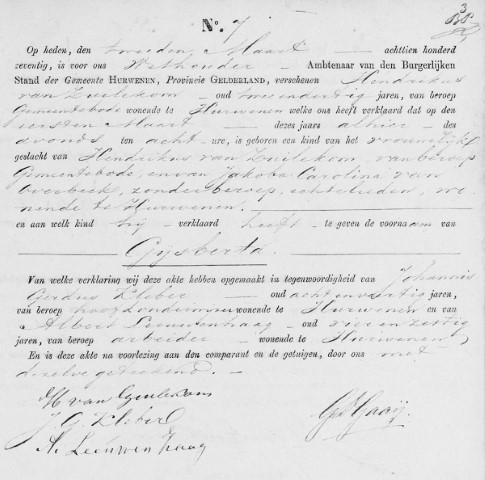 3
No. 7
Op heden, den tweeden Maart achttien honderd
zeventig, is voor ons Wethouder Ambtenaar van den Burgerlijken
Stand der Gemeente Hurwenen, Provincie Gelderland, verschenen Hendrikus
van Zuilekom oud twee en dertig jaren, van beroep
Gemeentebode wonende te Hurwenen welke ons heeft verklaard dat op den
eersten Maart dezes jaars alhier des
avonds ten acht ure, is geboren een kind van het vrouwelijk
geslacht van Hendrikus van Zuilekom, van beroep
Gemeentebode, en van Jakoba Carolina van
Overbeek, zonder beroep, echtelieden, wo-
nende te Hurwenen
en aan welk kind hij verklaard heeft te geven de voornaam van
Gijsberta.
Van welke verklaring wij deze akte hebben opgemaakt in tegenwoordigheid van Johannis
Gerdus Kleber oud acht en veertig jaren,
van beroep wonende te Hurwenen en van
Albert Leeuwenhaag oud vier en zestig
jaren, van beroep arbeider wonende te Hurwenen
En is deze akte na voorlezing aan den comparant en de getuigen, door ons met
dezelve geteekend.
H van Zuilekom
J G Kleber
A. Leeuwenhaag